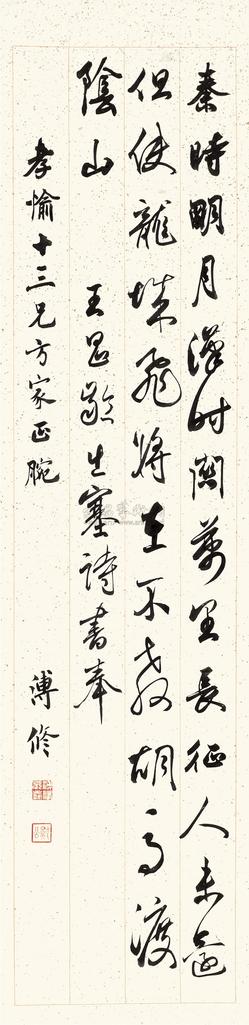 秦時明月漢時關萬里長征人未還
但使龍城飛將在不教胡馬渡
陰山 王昌齡出塞詩書奉
孝愉十三兄方家正腕 溥修